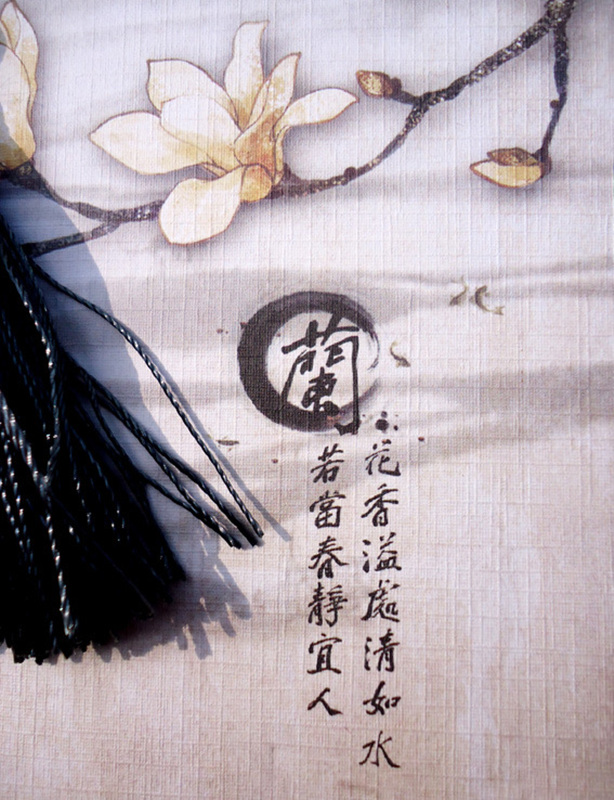 蘭
花香溢處清如水
若當春靜宜人